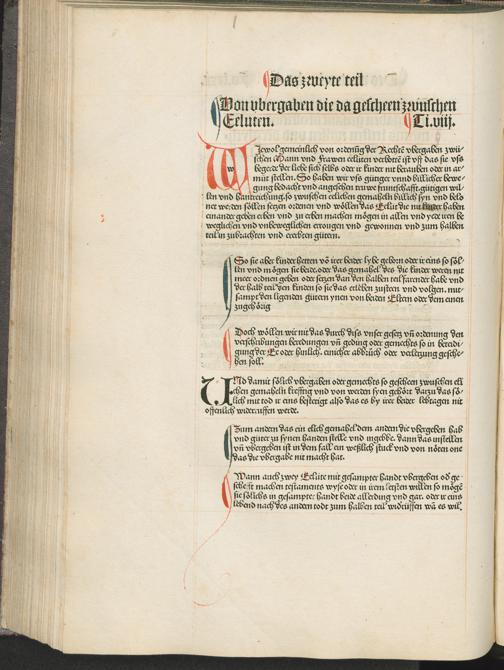 Das zweyte teil
Von vbergaben die da gescheen zwuischen
Eeluten. Ti. viij.
Jewol gemeinlich von ordenūg der Rechtē vbergaben zwü-
schen Mann und Frawen eeluten verbotē ist vff das sie vsß
begerde der liebe sich selbs oder ir kinder nit berauben oder in ar-
mút stellen. So haben wir vsß günger vnnd billicher bewe-
gung bedacht vnd angesehen truwe fruntschafft gütigen wil-
len vnd hantreichung. so zwuschen eelichen gemaheln billich syn vnd belo-
net werden söllen setzen ordenen vnd wöllen das Eelut die nit kinder haben
einander geben erben vnd zu erben machen mögen in allen vnd yedē iren be
weglichen vnd vnbeweglichen errougen vnd gewonnen vnd zum halben
teil in zubrachten vnd ererbten gütern.
So sie aber kinder hetten vō irer beider lybe geborn oder ir eins so söl-
len vnd mögen sie beide. oder das gemahel des die kinder weren nit
meer ordnen geben oder setzen dan den halben teil farender habe vnd
der halb teil den kinden so sie das erleben zusteen vnd volgen. mit
sampt den ligenden gütern ynen von beiden Eltern oder dem einen
zugehörig
Doch wöllen wir nit das durch diss vnser gesetz vñ ordenung den
verschribungen beredungen vñ geding oder gemechts so in beredi-
gung der Ee oder hinlich. einicher abbruch oder verletzung gesche-
hen soll.
Vnd damit sölich vbergaben oder gemechts so gescheen zwuschen eli
chen gemaheln krefftig vnd von werden syen gehört darzu das sö-
lich mit tod ir eins bestetigt also das es by irer beider lebtagen nit
offenlich widerruffen werde.
Zum andern das ein elich gemahel dem andern die vbergeben hab
vnd güter zu synen handen stelle vnd ingebe. dann das instellen
vñ vbergeben ist in dem fall ein weßlich stuck vnd von nöten one
das die vbergabe nit macht hat.
Wann auch zwey Eelüte mit gesampter handt vbergeben od' ge-
scheft machen testaments wyse oder in irem letsten willen so mögē
sie sölichs in gesampter handt beide allerding vnd gar. oder ir eins
lebend nach des andern tode zum halben teil widerüffen wā es wil.